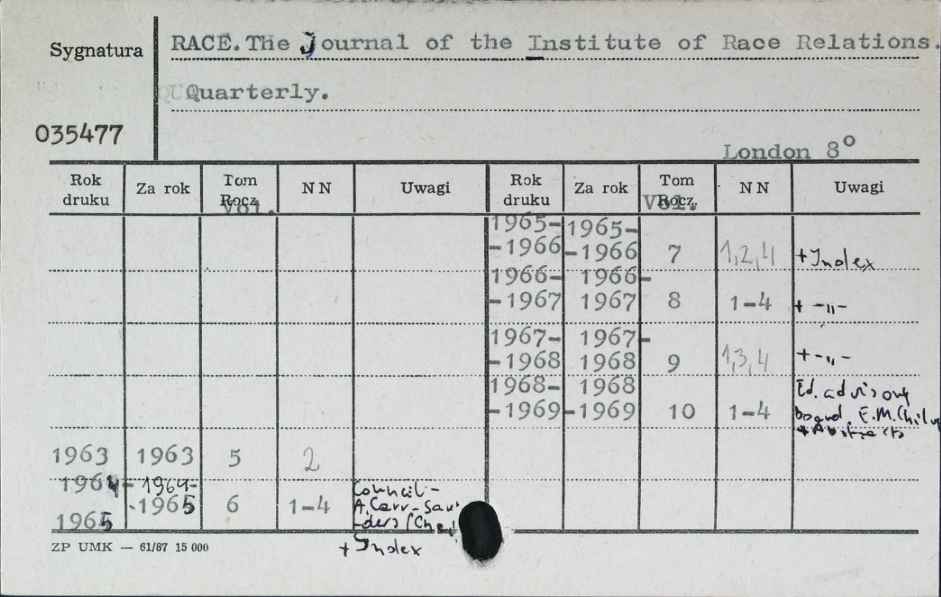 Sygnatura
RACE. The Journal of the Institute of Race Relations.
Quarterly.
035477
London 8°
Rok druku Za rok Tom Rocz. Vol. NN Uwagi Rok druku Za rok Tom Rocz. Vol. NN Uwagi
1965- -1966 1965- -1966 7 1,2,4 + Index
1966- -1967 1966- 1967 8 1-4 + -"-
1967- -1968 1967- 1968 9 1,3,4 + -"-
1968- -1969 1968 -1969 10 1-4 Ed. advisory board E.M. + Abstracts
1963 1963 5 2
1964- 1965 1964- -1965 6 1-4 Council - A. Carr-Saunders
+ Index
ZP UMK — 61/67 15 000